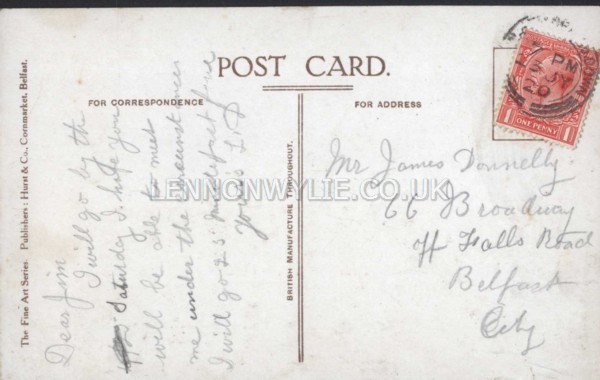 POST CARD.
FOR CORRESPONDENCE
FOR ADDRESS
The Fine Art Series. Publishers: Hurst & Co., Cornmarket, Belfast.
BRITISH MANUFACTURE THROUGHOUT.
Dear Jim
I will go by the
Saturday I hope you
will be able to meet
me under the circumstances
I will go 2.5'
yours L.D
Mr James Donnelly
66 Broadway
Falls Road
Belfast
City
7 PM
20
1 ONE PENNY 1
LENNONWYLIE.CO.UK